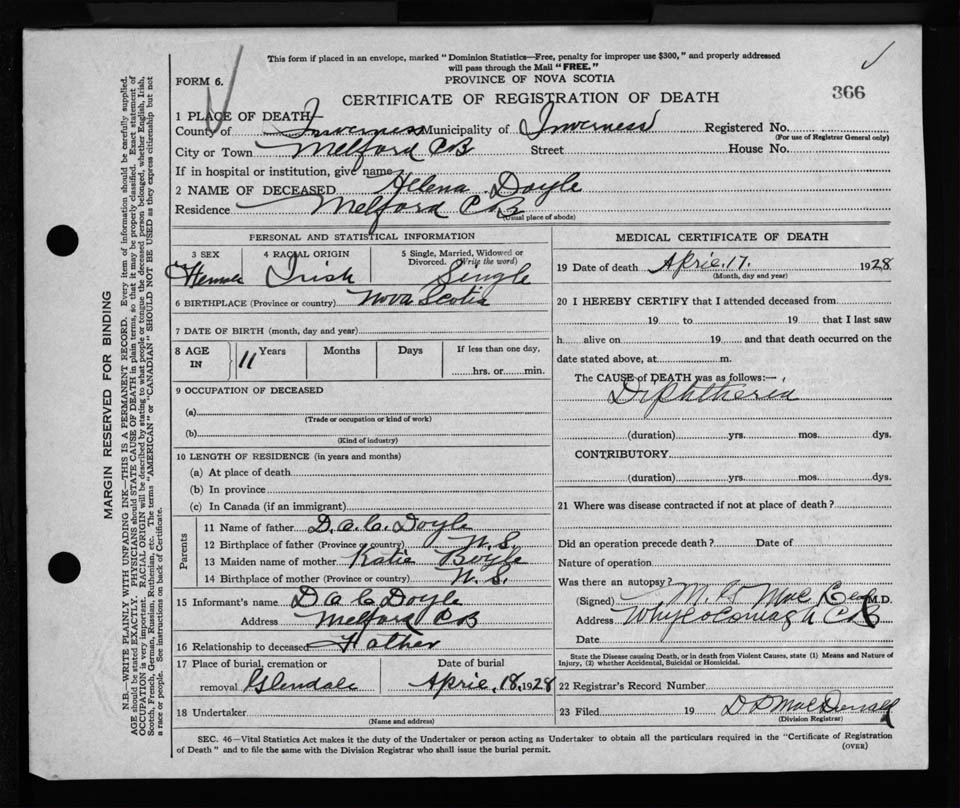 This form if placed in an envelope, marked "Dominion Statistics—Free, penalty for improper use $300," and properly addressed
will pass through the Mail "FREE."
FORM 6.
PROVINCE OF NOVA SCOTIA
CERTIFICATE OF REGISTRATION OF DEATH
366
1 PLACE OF DEATH—
County of Inverness Municipality of Inverness Registered No.
(For use of Registrar General only)
City or Town Melford CB Street House No.
If in hospital or institution, give name
2 NAME OF DECEASED Helena Doyle
Residence Melford CB
(Usual place of abode)
PERSONAL AND STATISTICAL INFORMATION
3 SEX 4 RACIAL ORIGIN 5 Single, Married, Widowed or
Divorced. (Write the word)
Female Irish Single
6 BIRTHPLACE (Province or country) Nova Scotia
7 DATE OF BIRTH (month, day and year)
8 AGE IN 11 Years Months Days If less than one day,
hrs. or min.
9 OCCUPATION OF DECEASED
(a)
(Trade or occupation or kind of work)
(b)
(Kind of industry)
10 LENGTH OF RESIDENCE (in years and months)
(a) At place of death
(b) In province
(c) In Canada (if an immigrant)
Parents
11 Name of father D. A. C. Doyle
12 Birthplace of father (Province or country) N.S.
13 Maiden name of mother Katie Boyle
14 Birthplace of mother (Province or country) N.S.
15 Informant's name D A C Doyle
Address Melford CB
16 Relationship to deceased Father
17 Place of burial, cremation or Date of burial
removal Glendale April, 18, 1928
18 Undertaker
(Name and address)
MEDICAL CERTIFICATE OF DEATH
19 Date of death April 17. 1928
(Month, day and year)
20 I HEREBY CERTIFY that I attended deceased from
19 to 19 that I last saw
h alive on 19 and that death occurred on the
date stated above, at m.
The CAUSE of DEATH was as follows:—
Diphtheria
(duration) yrs. mos. dys.
CONTRIBUTORY
(duration) yrs. mos. dys.
21 Where was disease contracted if not at place of death?
Did an operation precede death? Date of
Nature of operation
Was there an autopsy?
(Signed) M. G Mac Leod M.D.
Address Whycocomagh CB
Date
State the Disease causing Death, or in death from Violent Causes, state (1) Means and Nature of
Injury, (2) whether Accidental, Suicidal or Homicidal.
22 Registrar's Record Number
23 Filed 19 D D MacDonald
(Division Registrar)
SEC. 46—Vital Statistics Act makes it the duty of the Undertaker or person acting as Undertaker to obtain all the particulars required in the "Certificate of Registration
of Death" and to file the same with the Division Registrar who shall issue the burial permit.
(OVER)
MARGIN RESERVED FOR BINDING
N.B.—WRITE PLAINLY WITH UNFADING INK—THIS IS A PERMANENT RECORD. Every item of information should be carefully supplied.
AGE should be stated EXACTLY. PHYSICIANS should STATE CAUSE OF DEATH in plain terms, so that it may be properly classified. Exact statement of
OCCUPATION is very important. RACIAL ORIGIN will be described by stating to what people or tongue the deceased person belonged, whether English, Irish,
Scotch, French, German, Russian, Ruthenian, etc. The terms "AMERICAN" or "CANADIAN" SHOULD NOT BE USED as they express citizenship but not
a race or people. See instructions on back of Certificate.